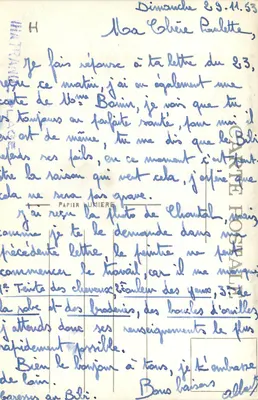 Dimanche 29.11.53
Ma Chère Paulette,
Je fais réponse à ta lettre du 23,
reçue ce matin, j'ai eu également une
carte de Mme Bonin, je vois que tu
es toujours en parfaite santé, pour moi il
en est de même, tu me dis que le Bibi
perds ses poils, en ce moment c'est peut-
être la saison qui veut cela, j'espère que
cela ne sera pas grave.
J'ai reçu la photo de Chantal, mais
comme je te le demande dans ma
précédente lettre, le peintre ne peut
commencer le travail, car il me manque
1° Teinte des cheveux, 2° couleur des yeux, 3° de
la robe et des broderies, des boucles d'oreilles
j'attends donc ses renseignements le plus
rapidement possible.
Bien le bonjour à tous, je t'embrasse
de loin.
Bons baisers
Caresses au Bibi.
CARTE POSTALE